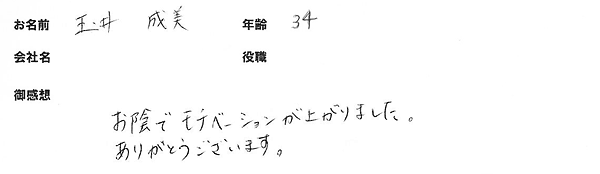 お名前 玉井 成美 年齢 34
会社名 役職
御感想
お陰でモチベーションが上がりました。
ありがとうございます。